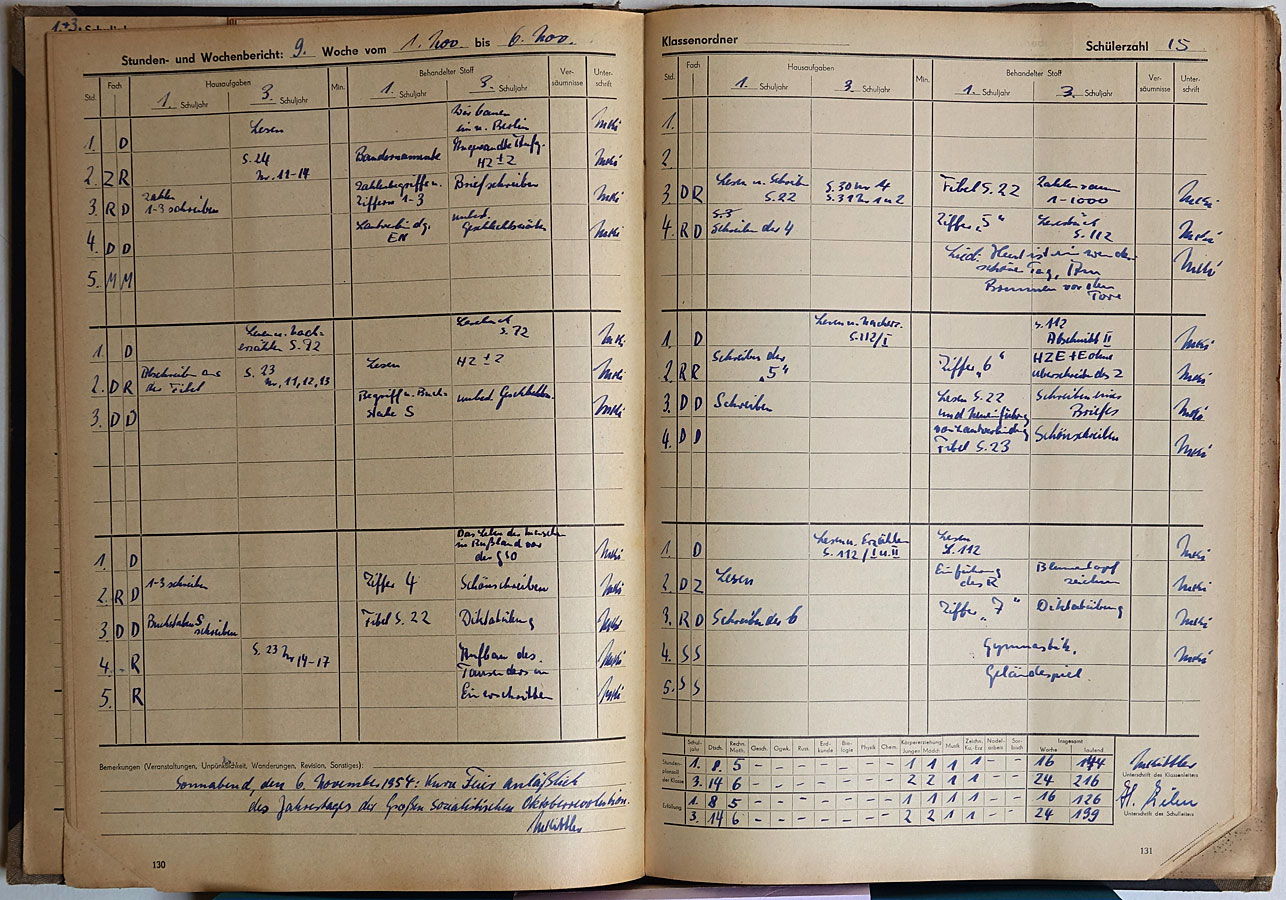 Stunden- und Wochenbericht: 9. Woche vom 1. Nov. bis 6. Nov.
Std. Fach Hausaufgaben Min. Behandelter Stoff Ver- Unter-
1. Schuljahr 3. Schuljahr 1. Schuljahr 3. Schuljahr säumnisse schrift
Wir bauen
1. D Lesen ein n. Berlin
S. 24
2. Z R Nr. 11-14 HZ ± Z
3. R D Zahlen Zahlenbegriffe u. Briefschreiben
1-3 schreiben Ziffern 1-3
4. D D unbest.
EN Geschlechtswörter
5. M M
Lesen u. nach- Lesebuch
1. D erzählen S. 72 S. 72
2. D R Abschreiben aus S. 23 Lesen HZ ± Z
der Fibel Nr. 11, 12, 13
3. D D Begriff u. Buch- unbest. Geschlechtsw.
stabe S
Das Leben der Menschen
in Rußland vor
1. D der
2. R D 1-3 schreiben Ziffer 4 Schönschreiben
3 D D Buchstaben S Fibel S. 22 Diktatübung
schreiben
4. - R S. 23 Nr 14-17 Aufbau des
Tausenders in
5. R Einerschritten
Bemerkungen (Veranstaltungen, Unpünktlichkeit, Wanderungen, Revision, Sonstiges):
Sonnabend, den 6. November 1954: Kurze Feier anläßlich
des Jahrestages der Großen Sozialistischen Oktoberrevolution.
130
Klassenordner Schülerzahl 15
Std. Fach Hausaufgaben Min. Behandelter Stoff Ver- Unter-
1. Schuljahr 3. Schuljahr 1. Schuljahr 3. Schuljahr säumnisse schrift
1.
2.
3 D R Lesen u. Schreiben S. 30 Nr 4 Fibel S. 22 Zahlenraum
S. 22 S. 31 Nr 1 u 2 1-1000
4. R D Schreiben der 4 Ziffer „5“ Lesestück
S. 112
Lied: Heut ist ein wunder-
schöner Tag, Am
Brunnen vor dem
Tore
1. D Lesen u. Nacherz. S. 112
S. 112/I Abschnitt II
2. R R Schreiben der Ziffer „6“ HZE ± E ohne
„5“ überschreiten des Z
3. D D Schreiben Lesen S. 22 Schreiben eines
und Neueinführung Briefes
4. D D von Lautverbindung Schönschreiben
Fibel S. 23
1. D Lesen u. Erzählen Lesen
S. 112/I u. II S. 112
2. D Z Lesen Einführung Blumentopf
des R zeichnen
3. R D Schreiben der 6 Ziffer „7“ Diktatübung
4. S S Gymnastik,
5. S S Geländespiel.
Schul- jahr Dtsch. Rechn. Math. Gesch. Ggwk. Russ. Erd- kunde Bio- logie Physik Chem. Körpererziehung Jungen Mädch. Musik Zeichn. Ku.-Erz. Nadel- arbeiten Insgesamt Woche laufend
Stunden- plansoll der Klasse 1. 8 5 - - - - - - - 1 1 1 1 - - 16 144
3. 14 6 - - - - - - - 2 2 1 1 - - 24 216
Erfüllung 1. 8 5 - - - - - - - 1 1 1 1 - - 16 126
3. 14 6 - - - - - - - 2 2 1 1 - - 24 199
Unterschrift des Klassenleiters
Unterschrift des Schulleiters
131